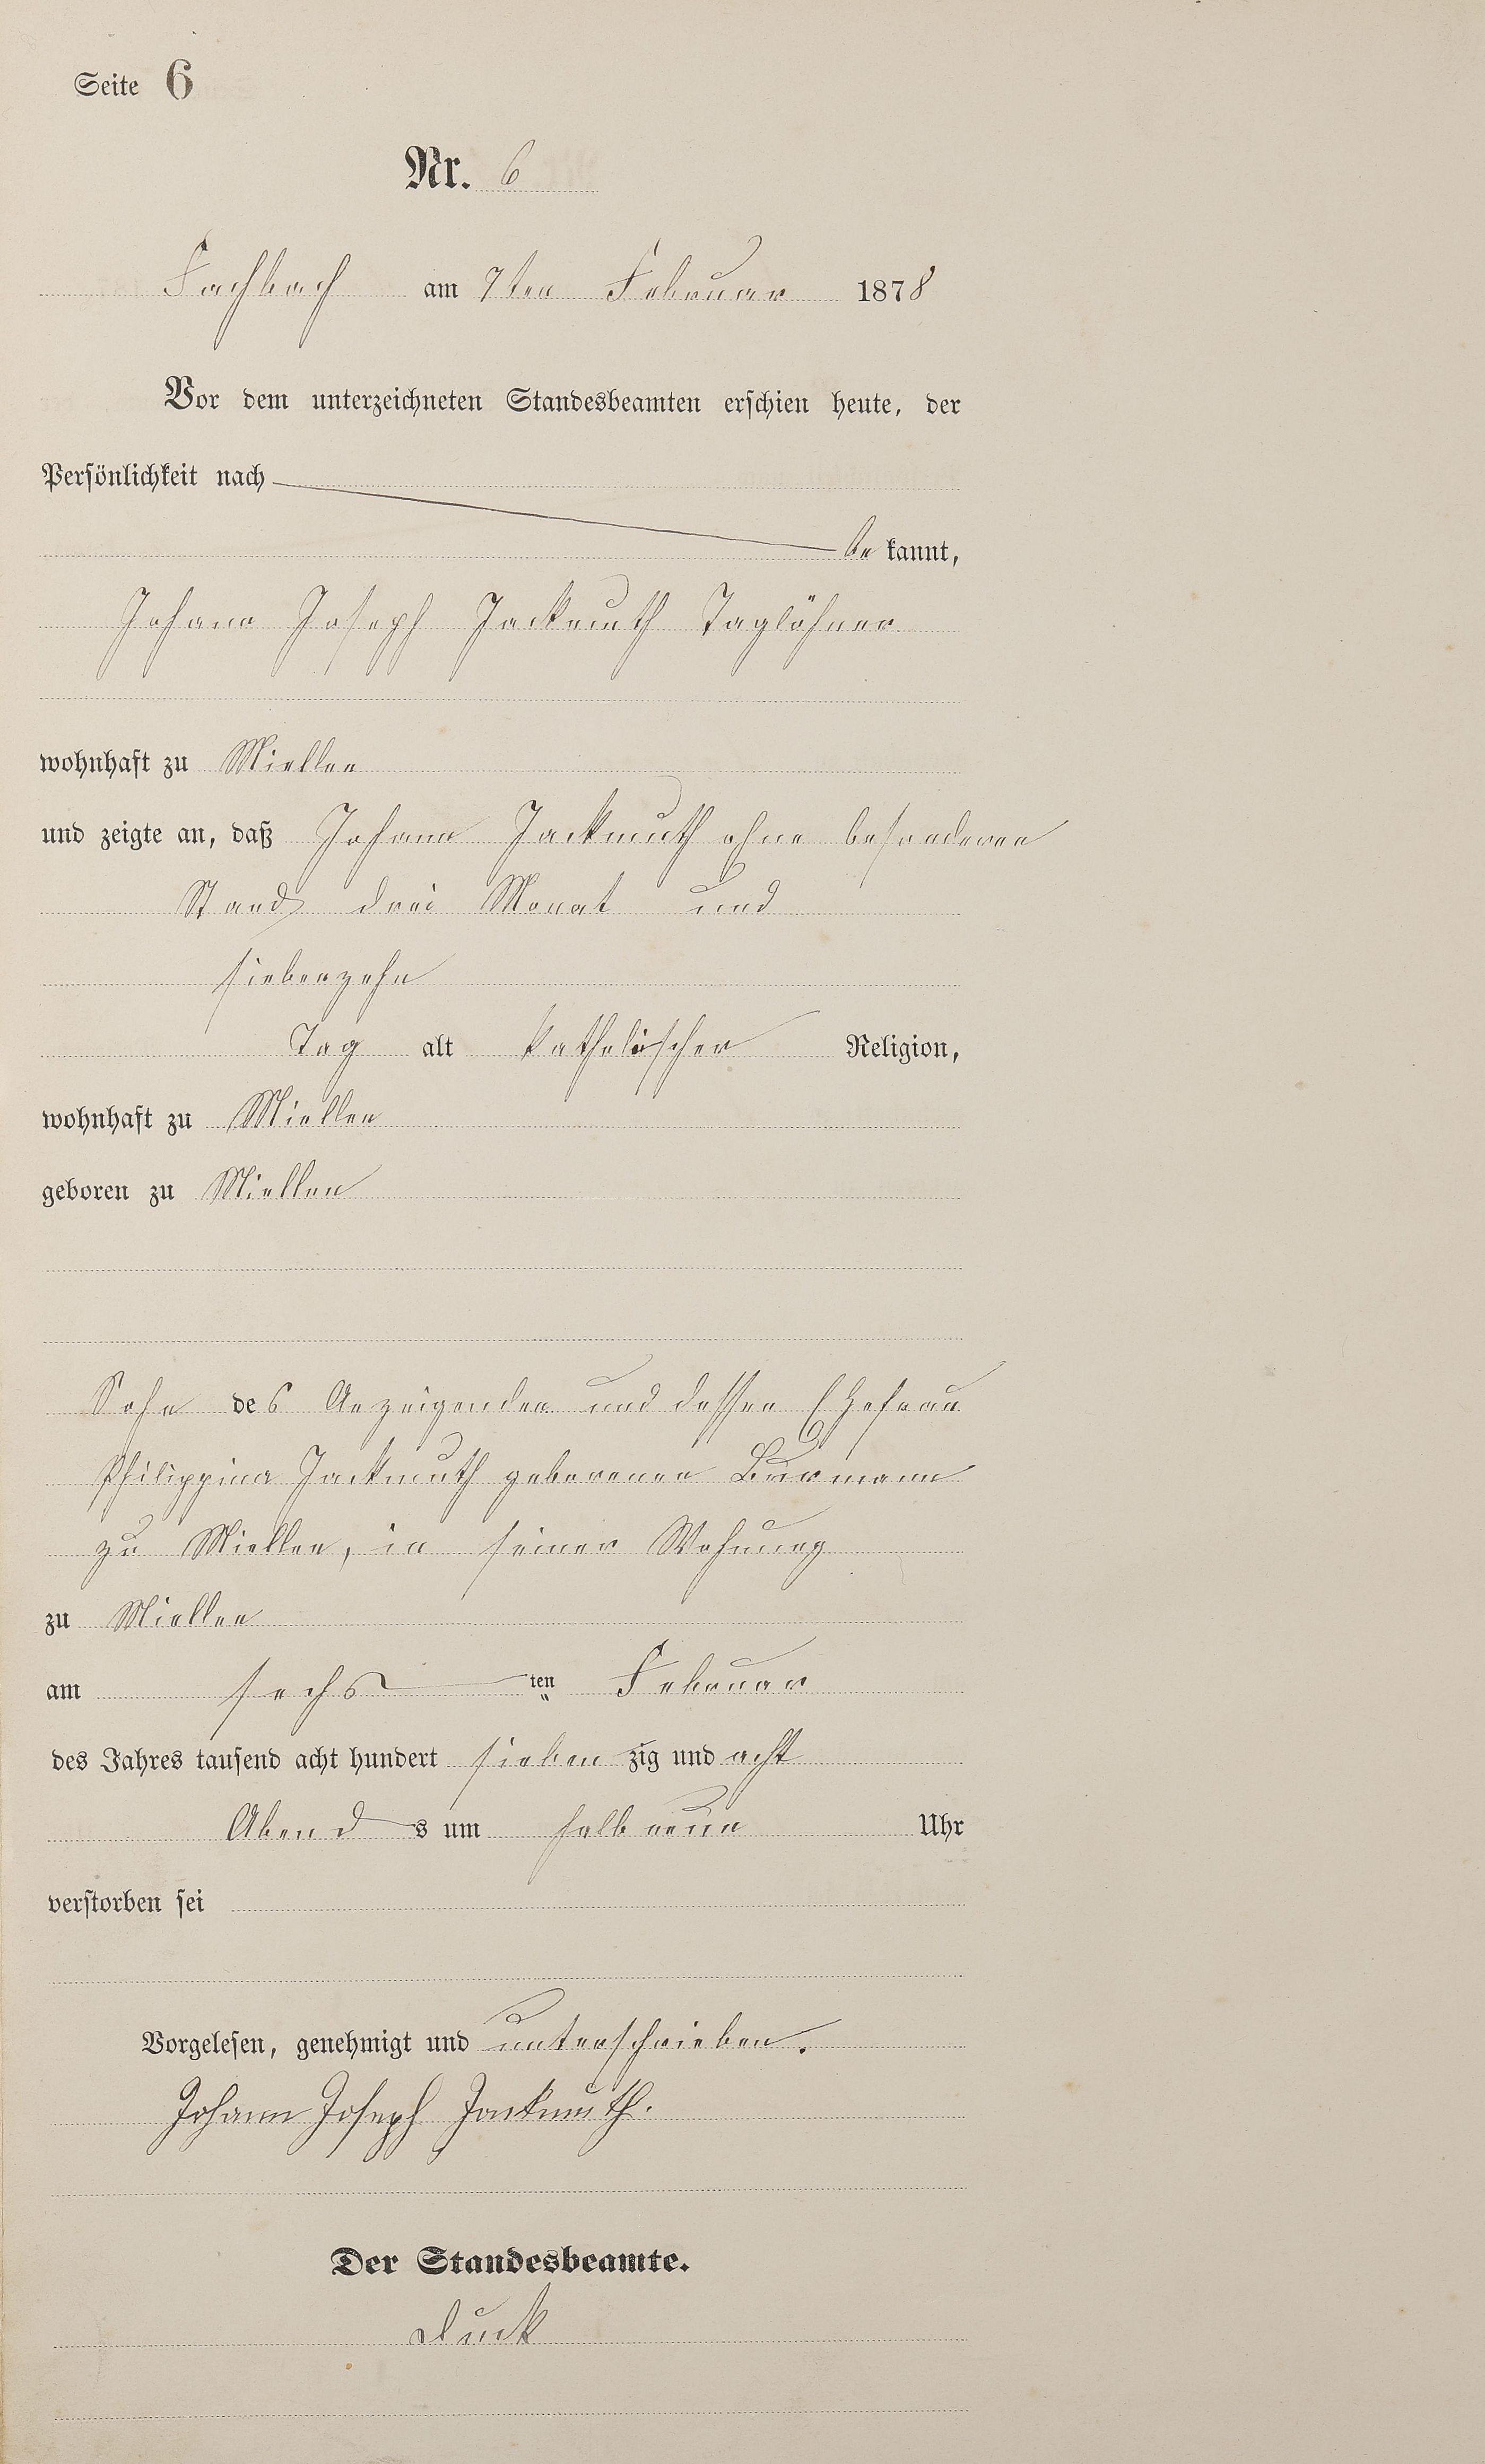 Seite 6
Nr. 6
Fachbach am 7ten Februar 1878
Vor dem unterzeichneten Standesbeamten erschien heute, der
Persönlichkeit nach
be kannt,
Johann Joseph Jackmuth Taglöhner
wohnhaft zu Miellen
und zeigte an, daß Johann Jackmuth ohne besonderen
Stand drei Monat und
siebenzehn
Tag alt katholischer Religion,
wohnhaft zu Miellen
geboren zu Miellen
Sohn des Anzeigenden und dessen Ehefrau
Philippina Jackmuth geborenen Burmann
zu Miellen, in seiner Wohnung
zu Miellen
am sechs ten Februar
des Jahres tausend acht hundert sieben zig und acht
Abend s um halb neun Uhr
verstorben sei
Vorgelesen, genehmigt und unterschrieben.
Johann Joseph Jackmuth.
Der Standesbeamte.
Duck